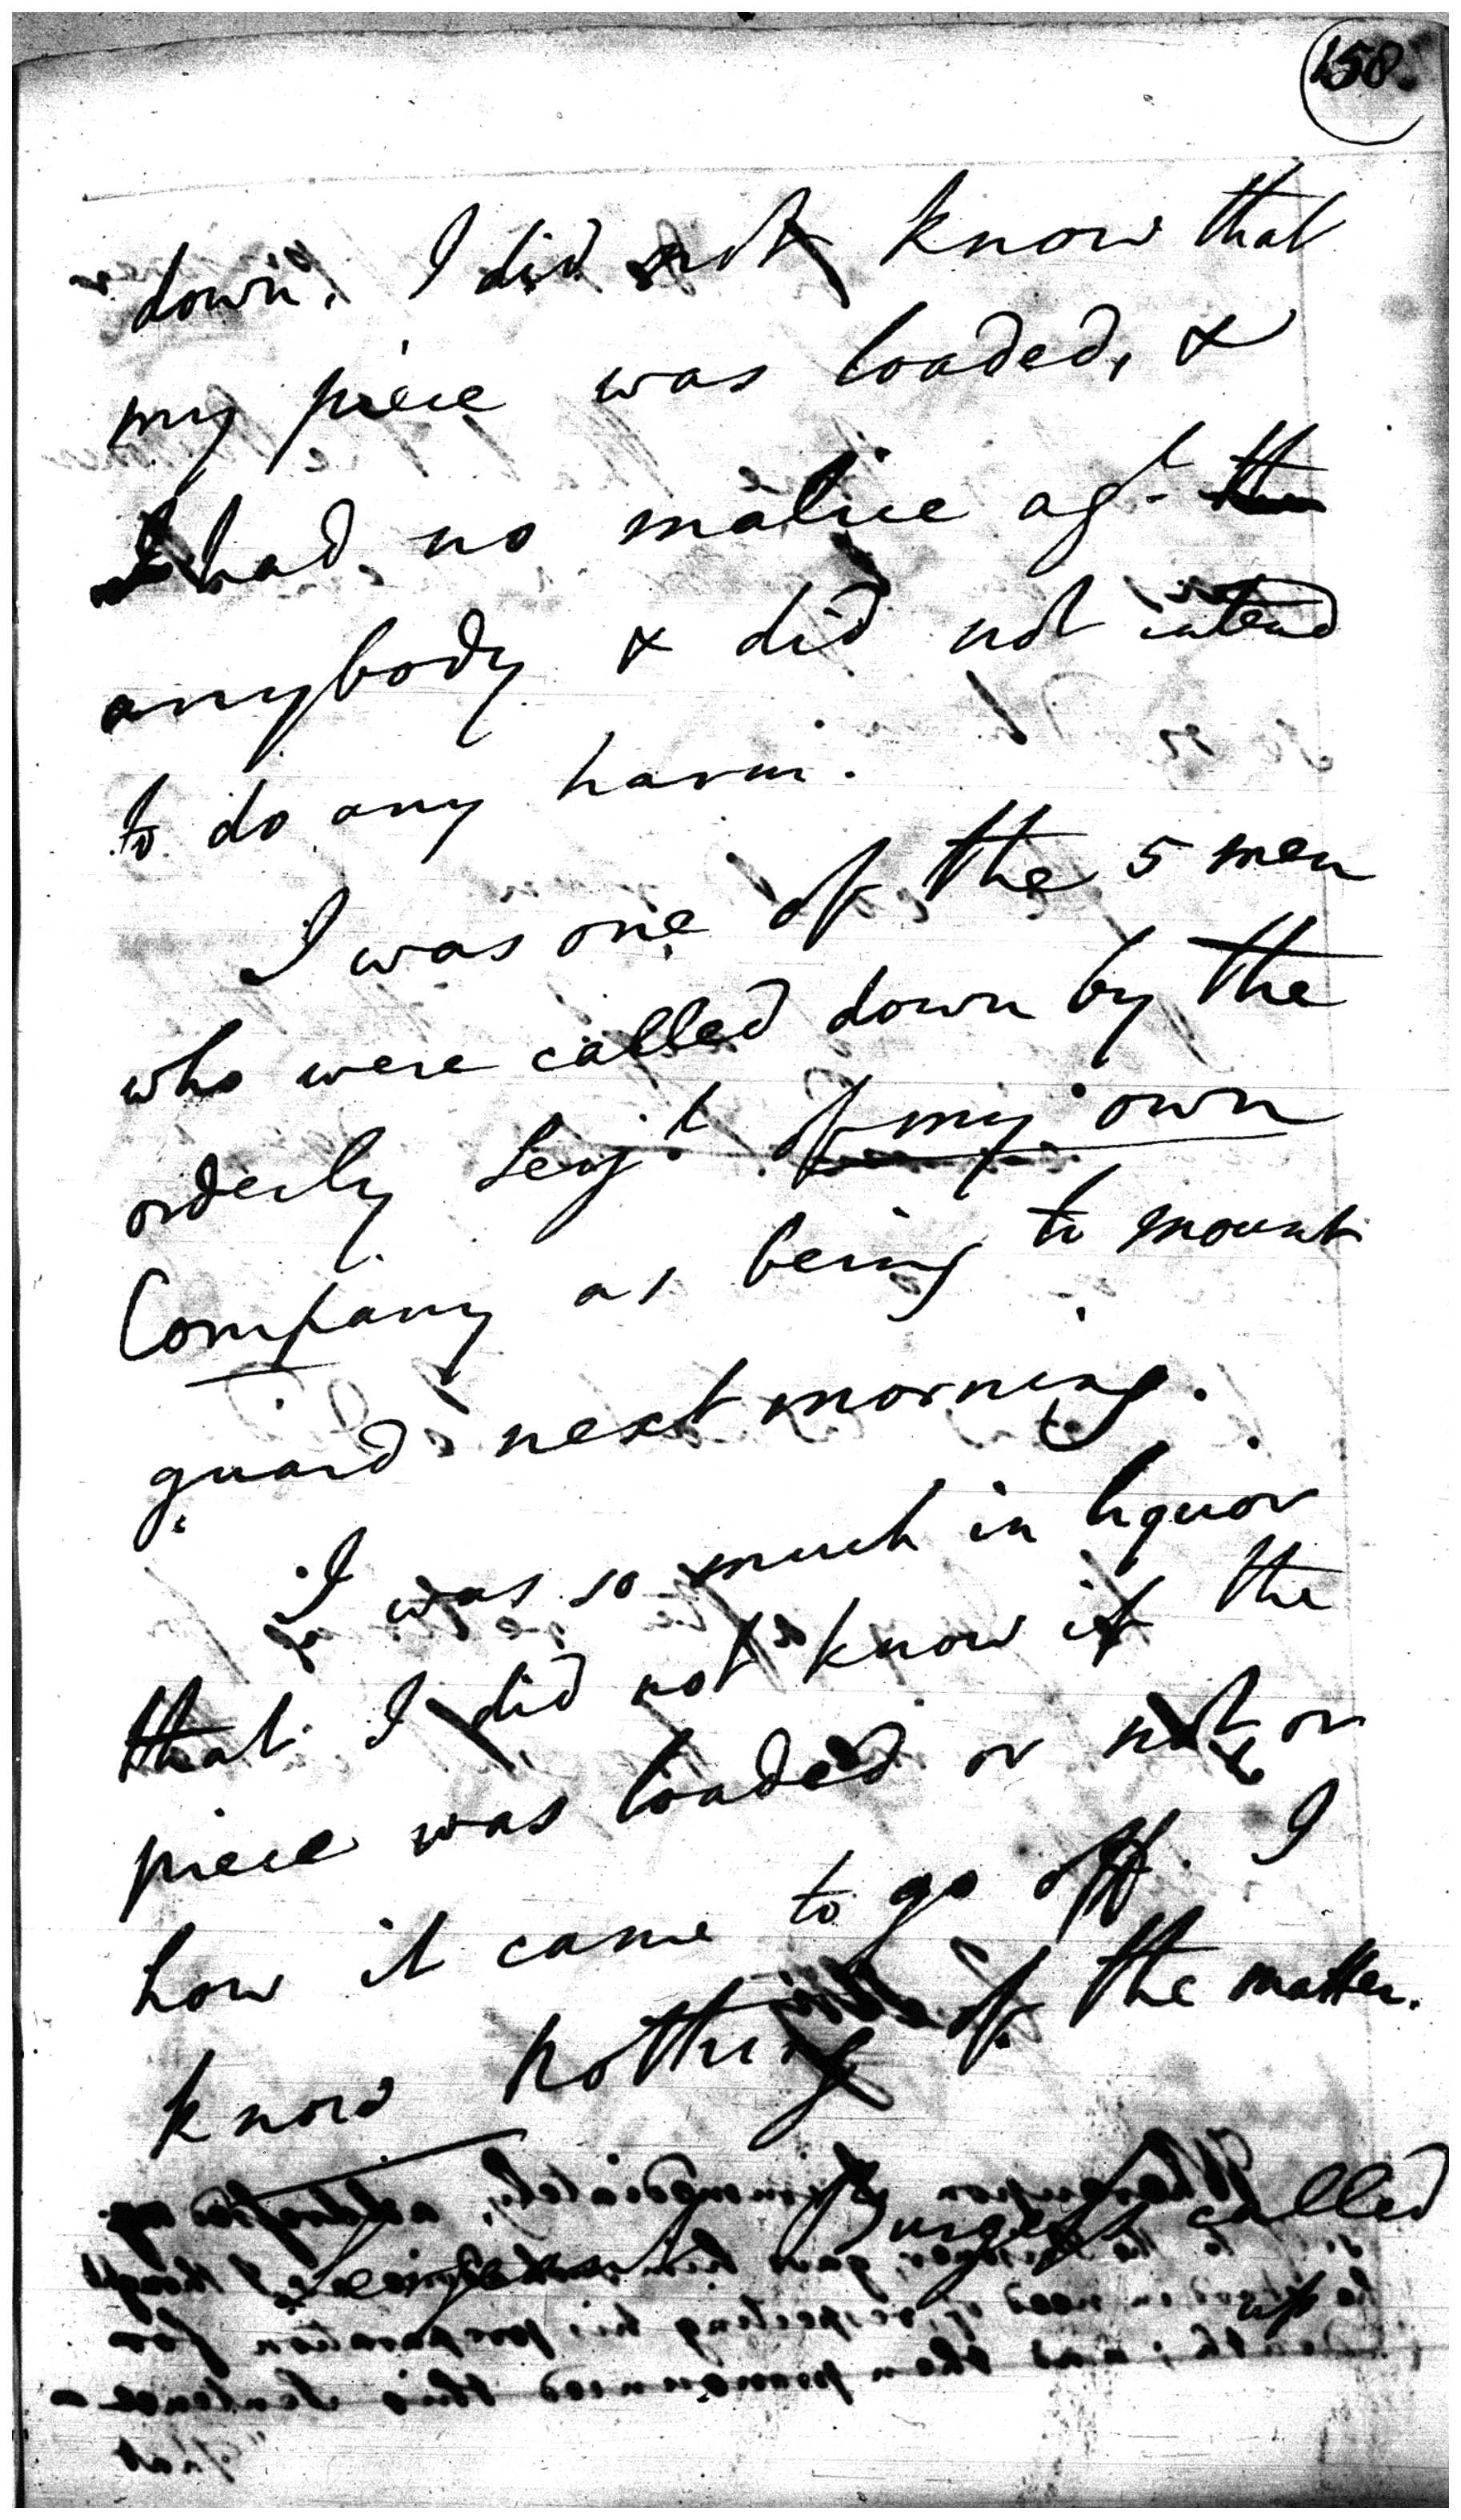 158.
down. I did not know that
my piece was loaded, &
I had no malice agt. the
anybody & did not intend
to do any harm.
I was one of the 5 men
who were called down by the
orderly Serjt. of my own
Company as being to mount
guard next morning.
I was so much in liquor
that I did not know if the
piece was loaded or not, or
how it came to go off. I
know nothing of the matter.
Serjeant Burgess called
up